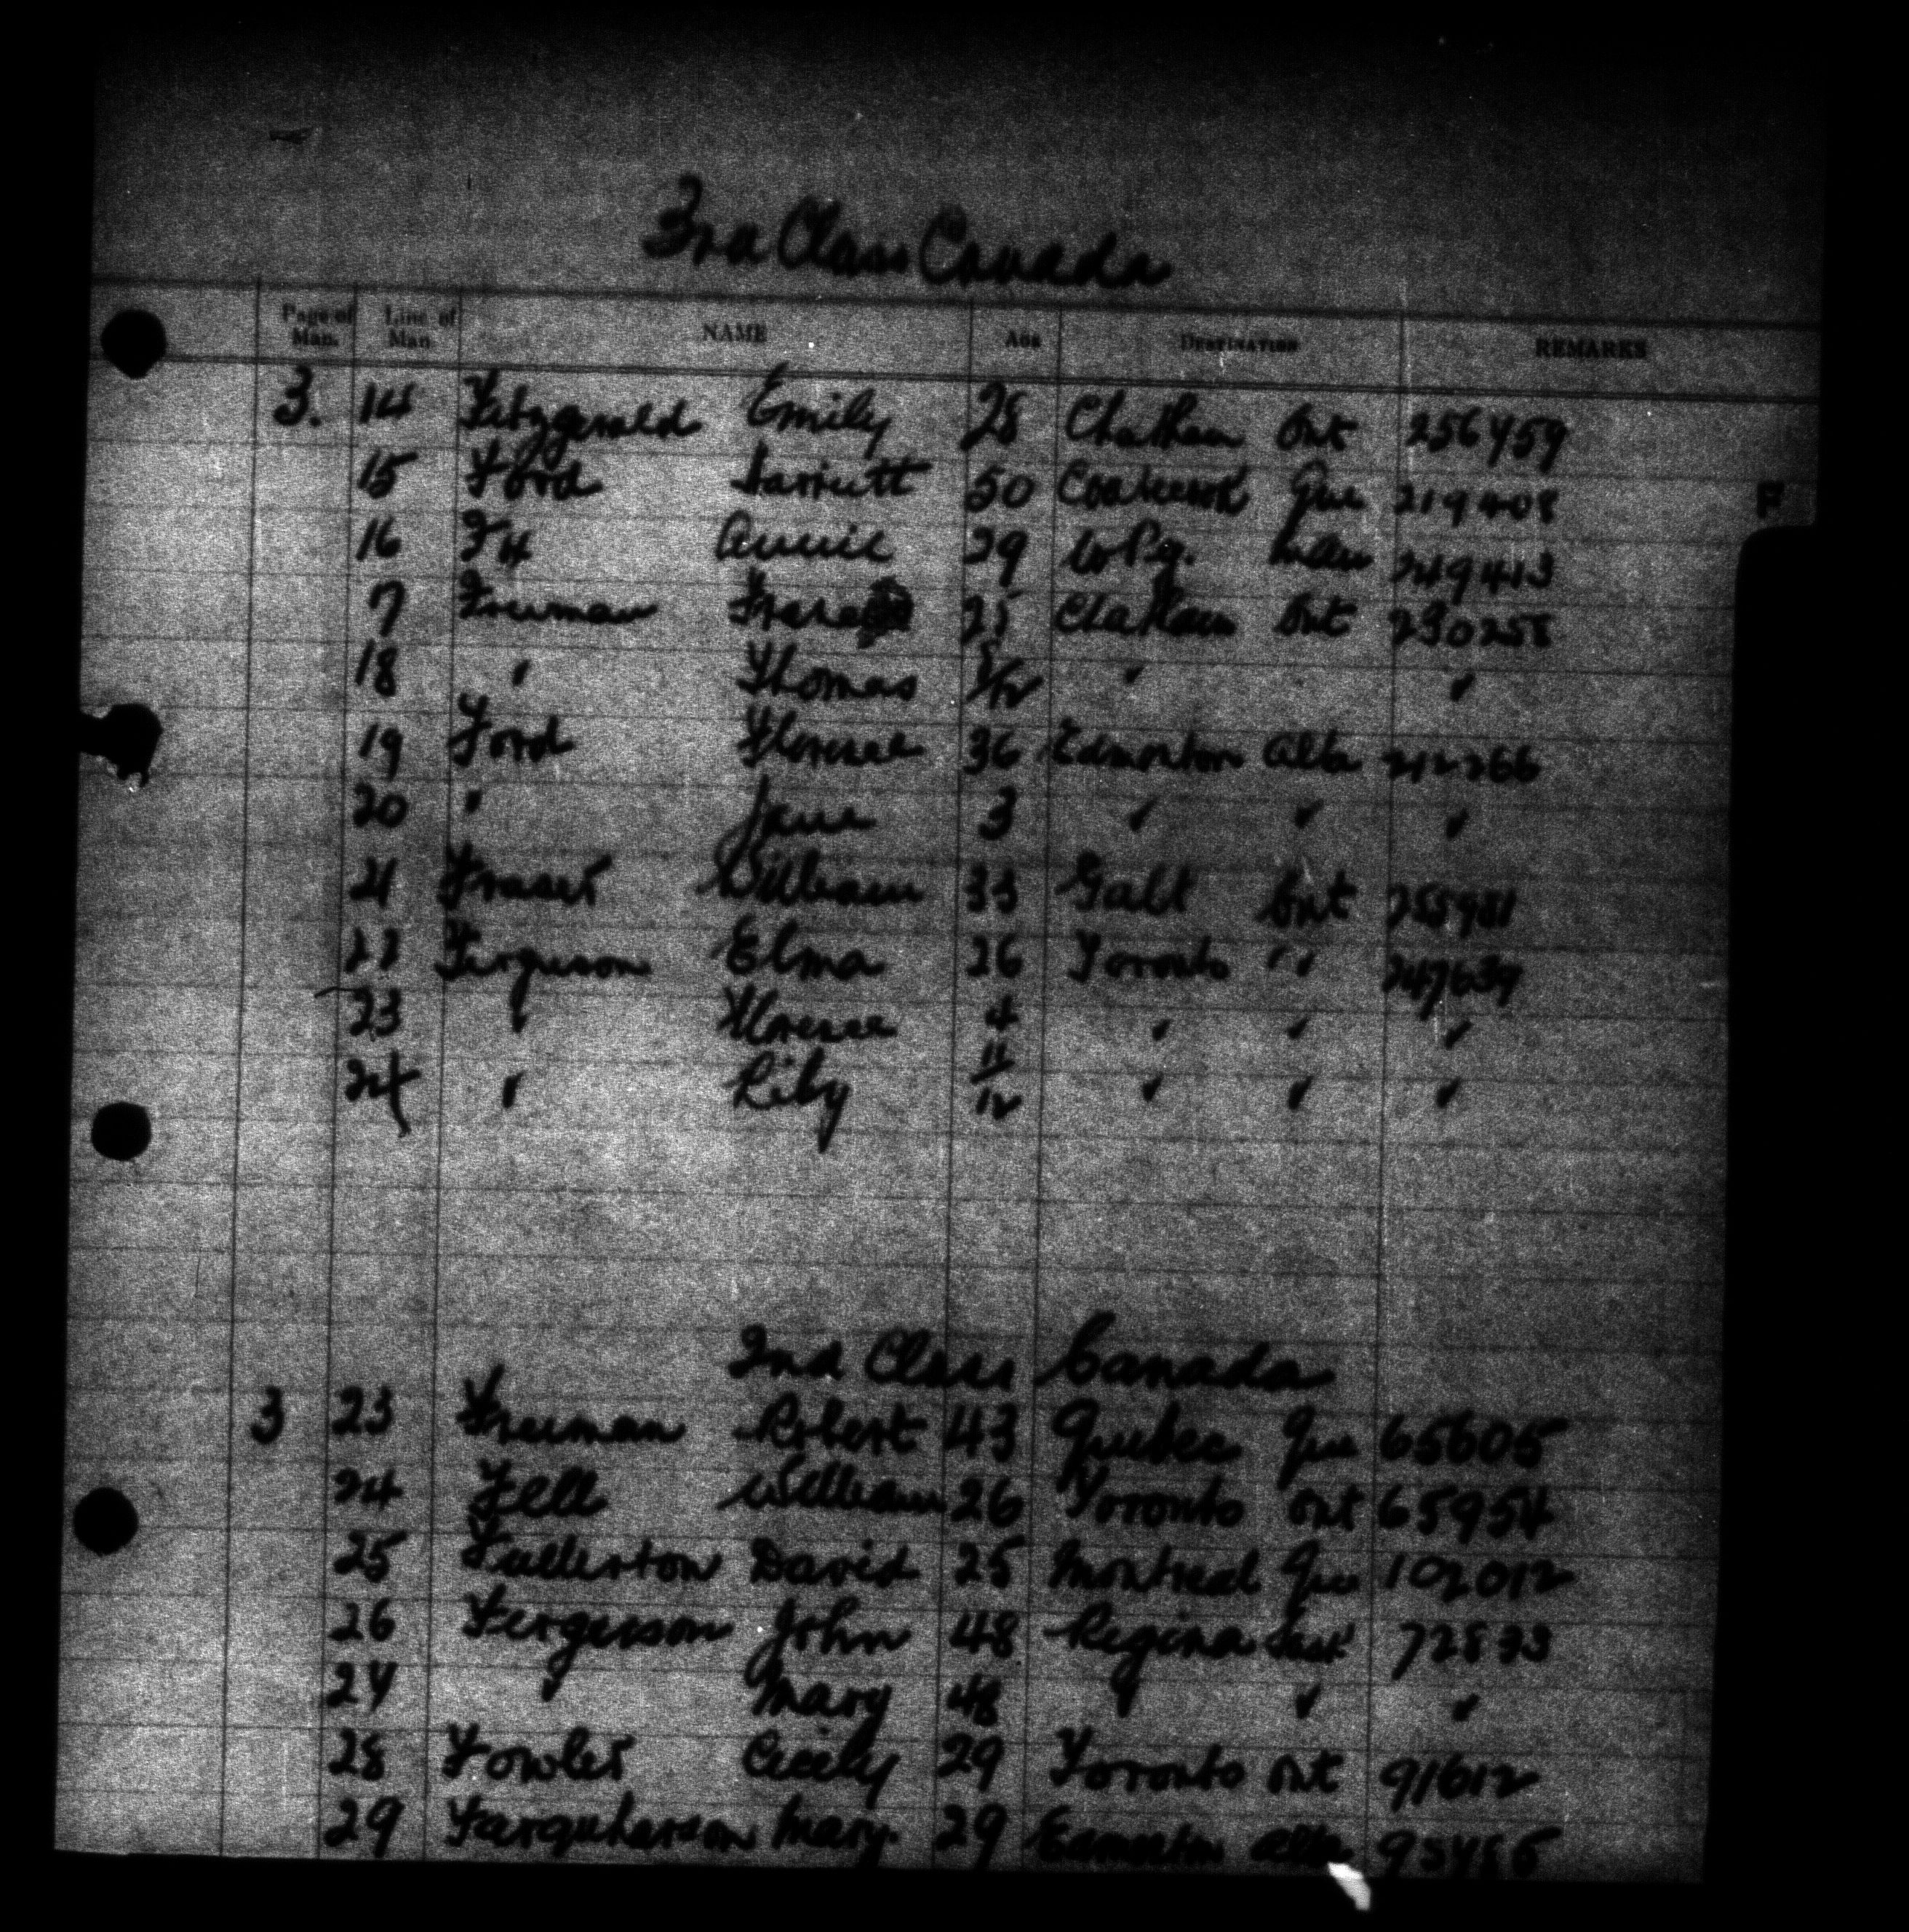 3rd Class Canada
Page of Man. Line of Man NAME AGE DESTINATION REMARKS
3. 14 Fitzgerald Emily 28 Chatham Ont 256459
15 Ford Harriett 50 Que 219408
16 Annie 29 WPg. 249413
F
7 Freeman 25 Chatham Ont 230258
18 " Thomas "  "
19 Ford Florence 36 Edmonton Alta 212266
20 " Jane 3 " " "
21 Fraser William 33 Galt Ont 255981
22 Ferguson Elma 26 Toronto " 247639
23 " Florence 4 " " "
24 " Lily 11/12 " " "
2nd Class Canada
3 23 Freeman Robert 43 Quebec Que 65605
24 Fell William 26 Toronto Ont 65954
25 Fullerton David 25 Montreal Que 102012
26 Fergusson John 48 Regina Sask 72833
27 " Mary 48 " " "
28 Fowler Cicely 29 Toronto Ont 91612
29 Farquharson Mary. 29 Edmonton Alta